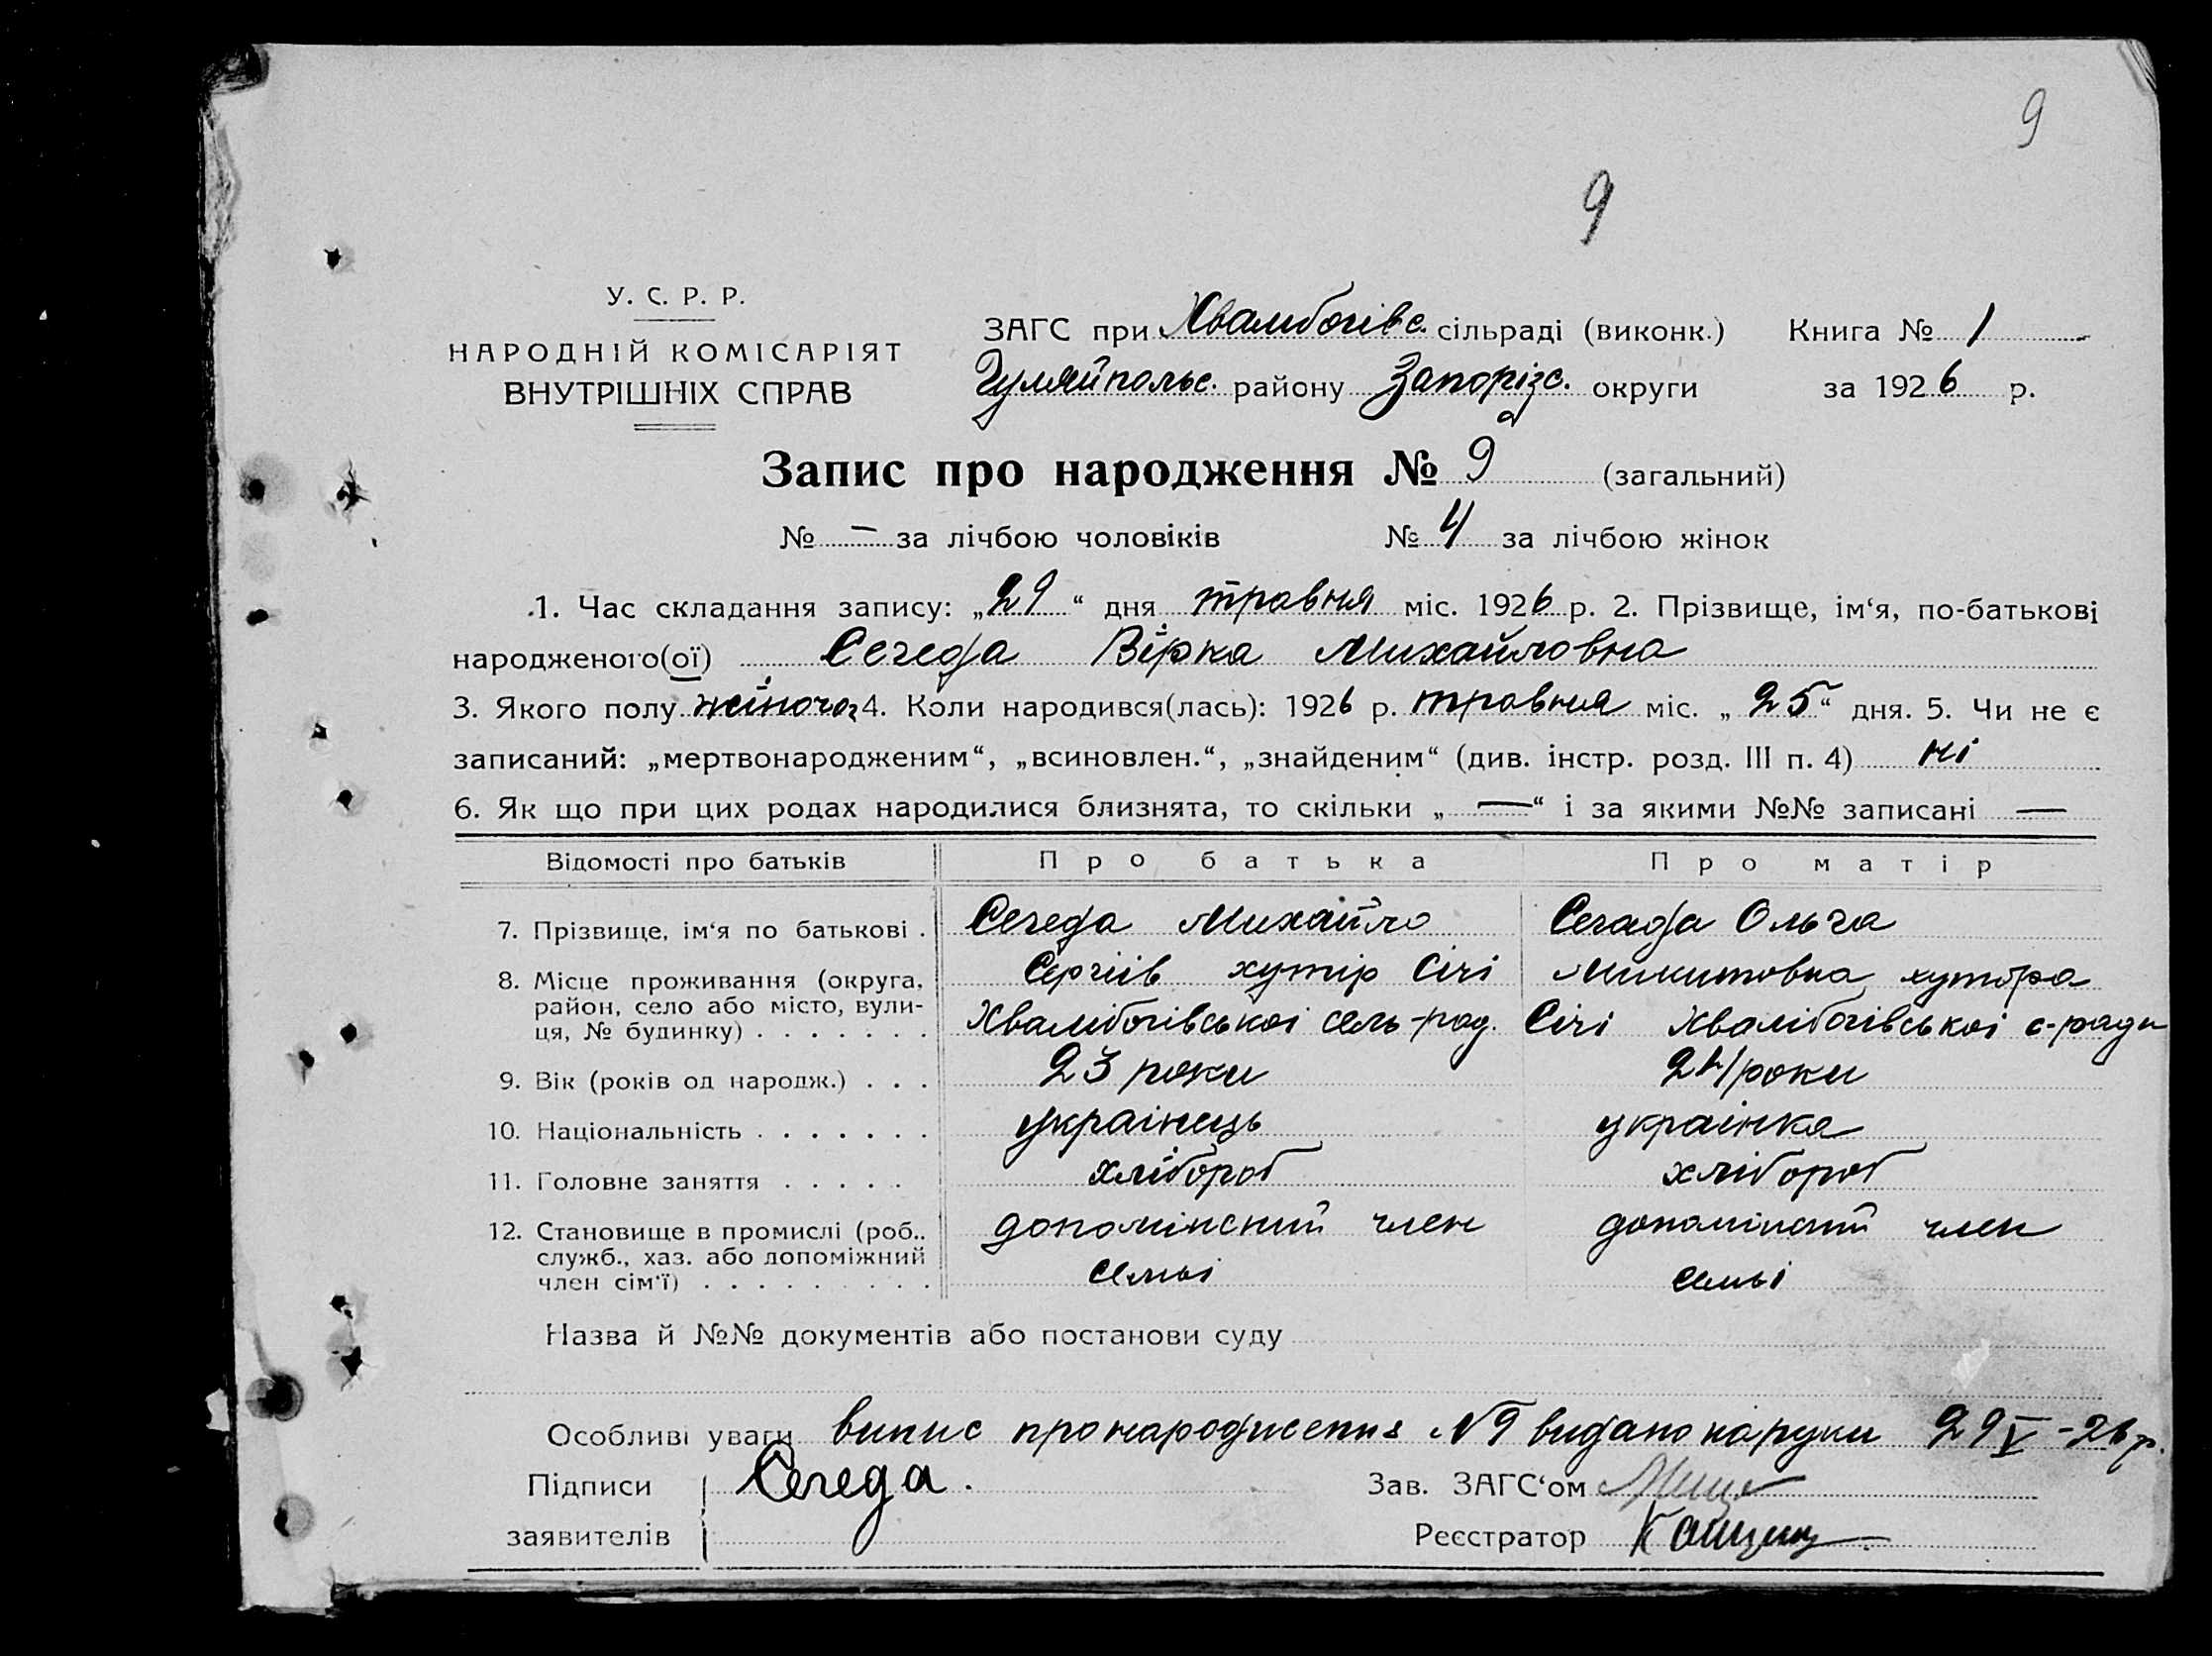 9
9
У. С. Р. Р.
НАРОДНІЙ КОМІСАРІЯТ
ВНУТРІШНІХ СПРАВ
ЗАГС при Хвалибогівс. сільраді (виконк.) Книга № 1
Гуляйпольс. району Запорізс. округи за 1926 р.
Запис про народження № 9 (загальний)
№ — за лічбою чоловіків № 4 за лічбою жінок
1. Час складання запису: „29“ дня травня міс. 1926 р. 2. Прізвище, ім‘я, по-батькові
народженого(ої) Сегеда Вірка Михайловна
3. Якого полу жіночог 4. Коли народився(лась): 1926 р. травня міс. „25“ дня. 5. Чи не є
записаний: „мертвонародженим“, „всиновлен.“, „знайденим“ (див. інстр. розд. III п. 4) ні
6. Як що при цих родах народилися близнята, то скільки „—“ і за якими №№ записані —
Відомості про батьків Про батька Про матір
7. Прізвище, ім‘я по батькові . Сегеда Михайло Сегада Ольга
8. Місце проживання (округа, Сергіів хутір Січі Микитовна хутора
район, село або місто, вули-
ця, № будинку) . . . . . . . Хвалібогівськоі сель-рад. Січі Хвалібогівськоі с-ради
9. Вік (років од народж.) . . . 23 роки 24 роки
10. Національність . . . . . . . украінець украінка
11. Головне заняття . . . . . хлібороб хлібороб
12. Становище в промислі (роб., допоміжний член допоміжний член
служб., хаз. або допоміжний
член сім‘ї) . . . . . . . . . семьі семьі
Назва й №№ документів або постанови суду
Особливі уваги випис про народження № 9 видано на руки 29 V - 26 р.
Підписи Сегеда. Зав. ЗАГС‘ом
заявителів Реєстратор